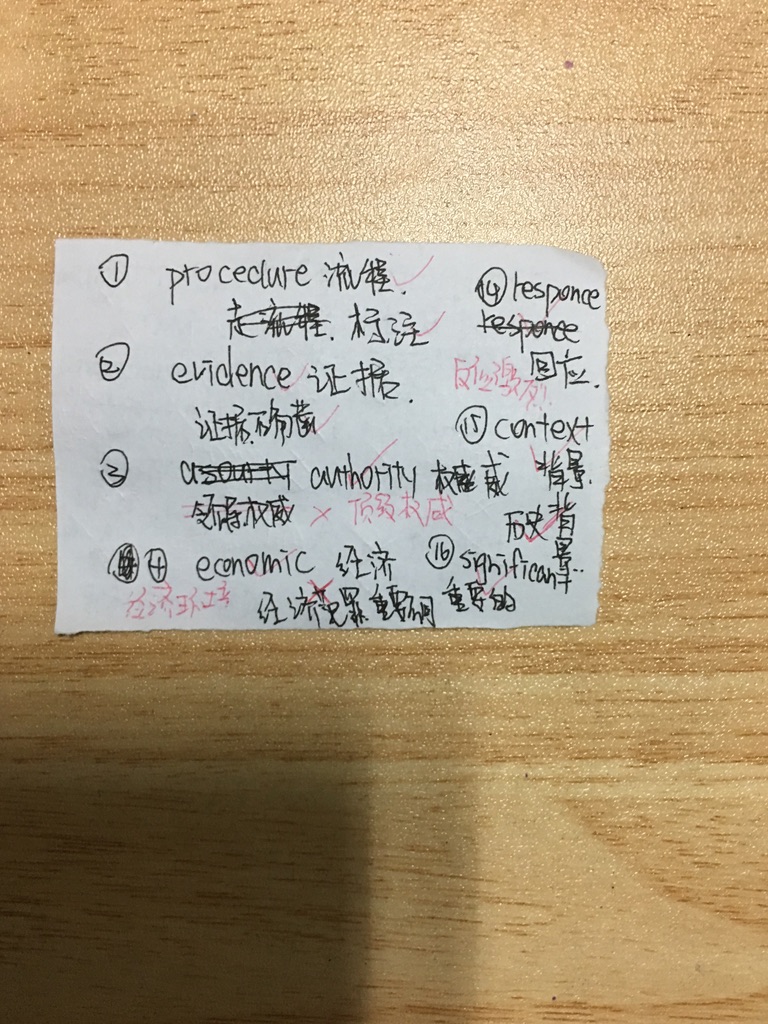 ① procedure 流程.
走流程. 标注
② evidence 证据.
证据确凿
③ authority 权威
领导权威 × 顶级权威
④ economic 经济
经济环境
经济犯罪 重要的
⑭ responce
responce
回应.
反应激烈
⑮ context
背景.
历史背景
⑯ significant
重要的